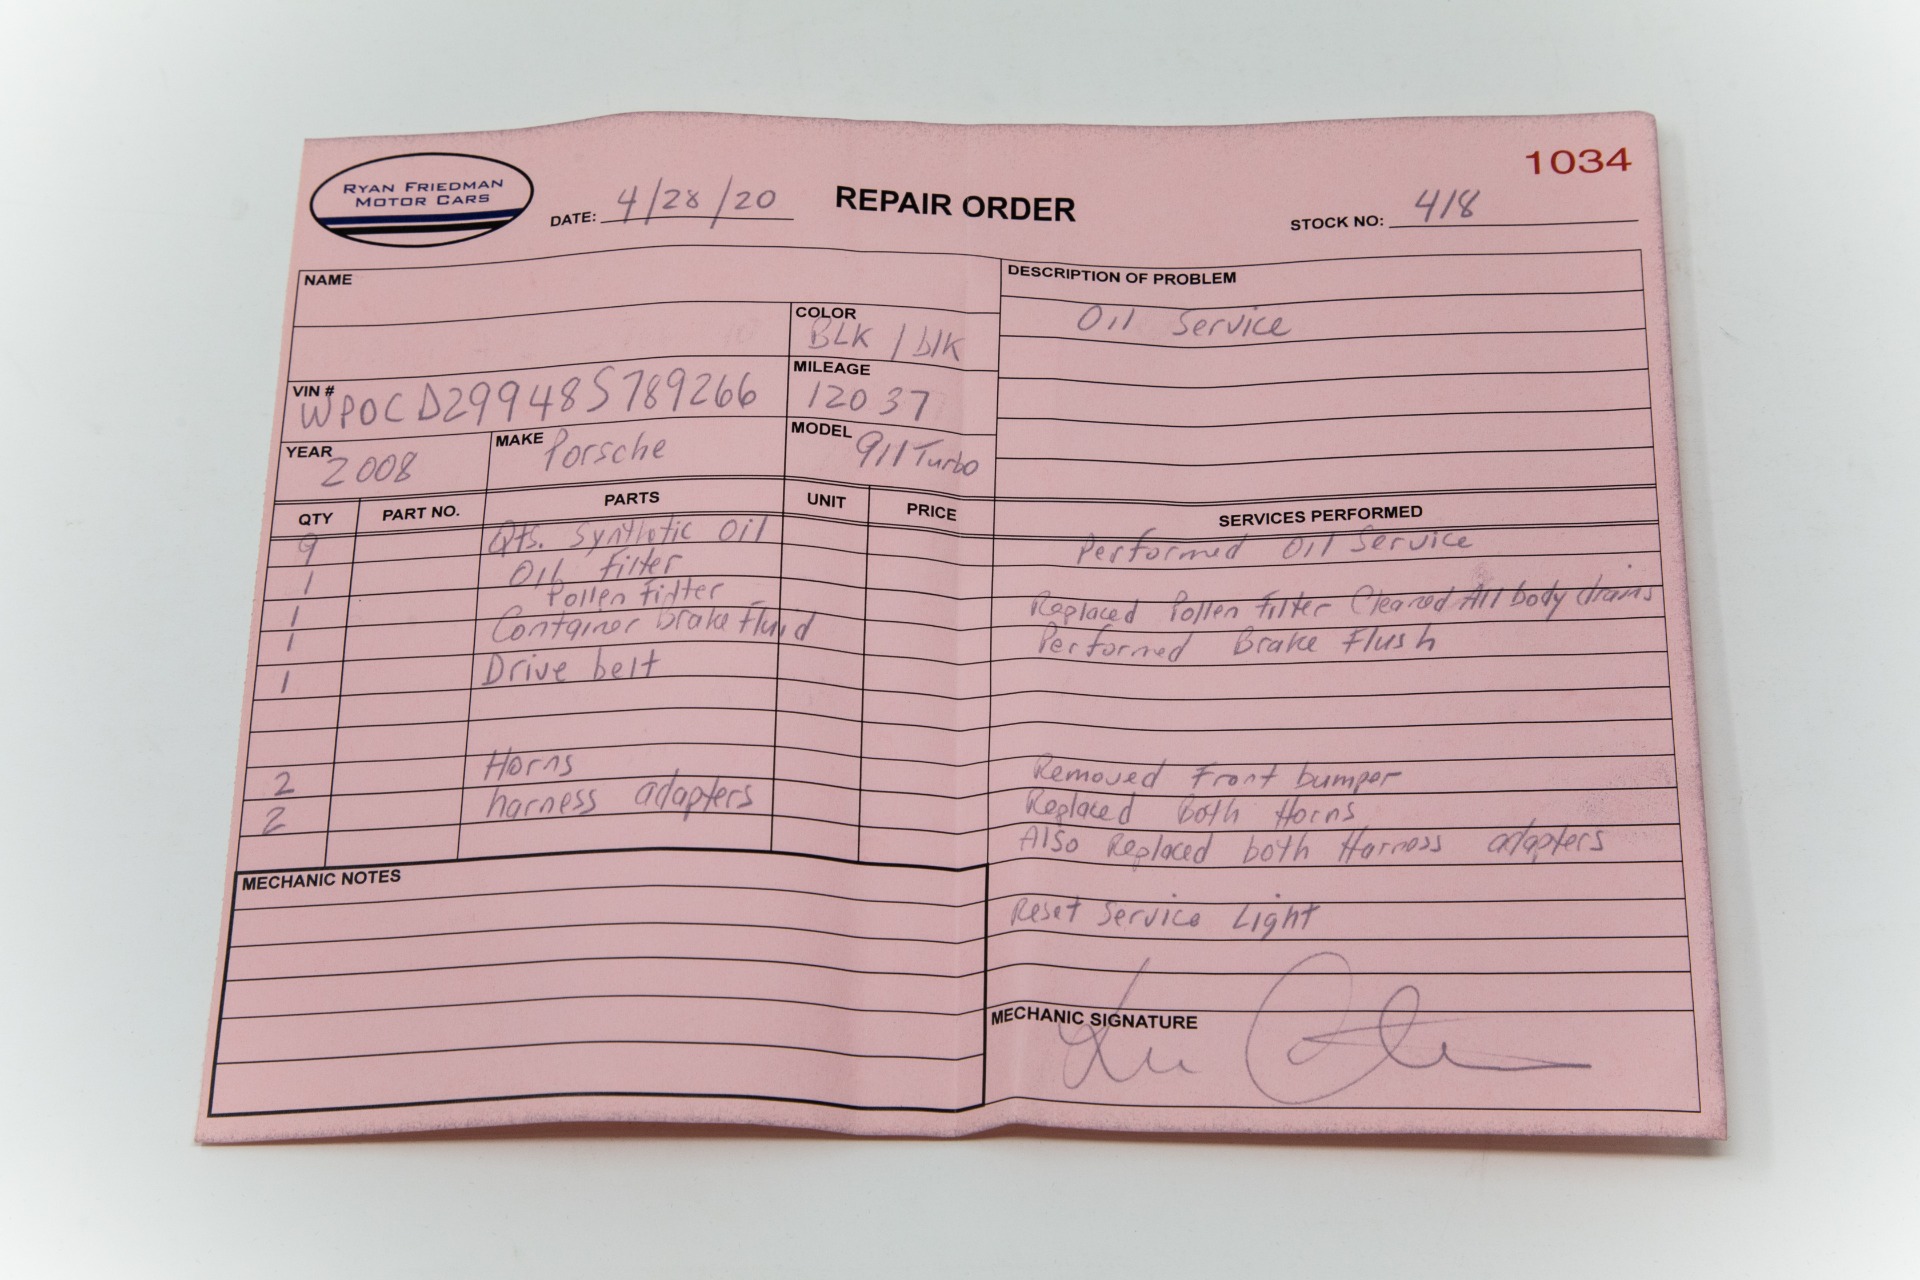 RYAN FRIEDMAN
MOTOR CARS
DATE: 4/28/20
REPAIR ORDER
1034
STOCK NO: 418
NAME
COLOR
BLK / blk
VIN #
WP0CD29948S789266
MILEAGE
12037
YEAR
2008
MAKE
Porsche
MODEL
911 Turbo
DESCRIPTION OF PROBLEM
Oil Service
QTY PART NO. PARTS UNIT PRICE
9 Qts. Synthetic Oil
1 Oil Filter
1 Pollen Filter
1 Container Brake Fluid
1 Drive belt
2 Horns
2 harness adapters
SERVICES PERFORMED
Performed Oil Service
Replaced Pollen Filter Cleaned All body drains
Performed Brake Flush
Removed Front bumper
Replaced Both Horns
Also Replaced both Harness adapters
Reset Service Light
MECHANIC NOTES
MECHANIC SIGNATURE